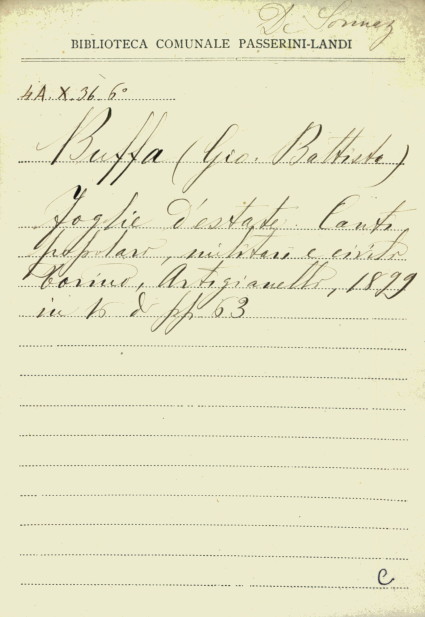 De
BIBLIOTECA COMUNALE PASSERINI-LANDI
4A. X. 36. 6°
Buffa (Gio. Battista)
Foglie d'estate. Canti
popolari, militari e civili
Torino, Artigianelli, 1899
in 16 di pp. 63
C